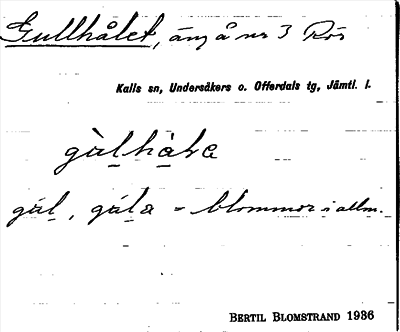 Gullhålet, äng å nr 3 Rös
Kalls sn, Undersåkers o. Offerdals tg, Jämtl. l.
gàlhàla
gál, gála = blommor i allm.
BERTIL BLOMSTRAND 1936